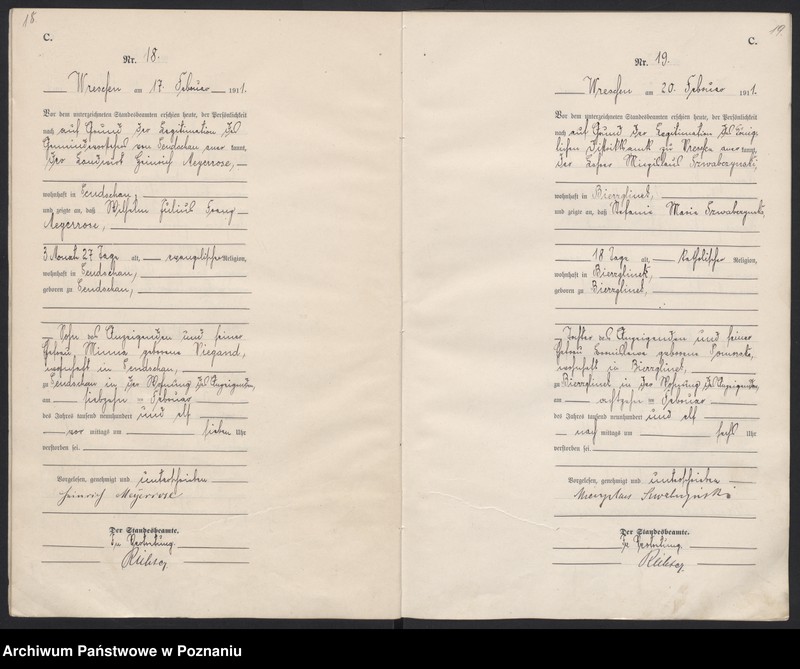 18
C.
Nr. 18.
Wreschen am 17. Februar 1911.
Vor dem unterzeichneten Standesbeamten erschien heute, der Persönlichkeit
nach auf Grund der Legitimation des
Gemeindevorstehers von Sendschau aner kannt,
der Landwirt Heinrich Meyerrose,
wohnhaft in Sendschau,
und zeigte an, daß Wilhelm Julius Franz
Meyerrose,
3 Monat 27 Tage alt, evangelischer Religion,
wohnhaft in Sendschau,
geboren zu Sendschau,
Sohn des Anzeigenden und seiner
Ehefrau Minna geborene Wiegand,
wohnhaft in Sendschau,
zu Sendschau in der Wohnung des Anzeigenden,
am siebzehn ten Februar
des Jahres tausend neunhundert und elf
vor mittags um sieben Uhr
verstorben sei.
Vorgelesen, genehmigt und unterschrieben
Heinrich Meyerrose
Der Standesbeamte.
In Vertretung.
19.
C.
Nr. 19.
Wreschen am 20. Februar 1911.
Vor dem unterzeichneten Standesbeamten erschien heute, der Persönlichkeit
nach auf Grund der Legitimation des König-
lichen Distriktsamts zu Wreschen aner kannt,
der Lehrer Szwabczynski,
wohnhaft in Bierzglinek,
und zeigte an, daß Stefania Maria Szwabczynski,
18 Tage alt, katholischer Religion,
wohnhaft in Bierzglinek,
geboren zu Bierzglinek,
Tochter des Anzeigenden und seiner
Ehefrau geborene
wohnhaft in Bierzglinek,
zu Bierzglinek in der Wohnung des Anzeigenden,
am achtzehn ten Februar
des Jahres tausend neunhundert und elf
nach mittags um sechs Uhr
verstorben sei.
Vorgelesen, genehmigt und unterschrieben
Der Standesbeamte.
In Vertretung.
Archiwum Państwowe w Poznaniu